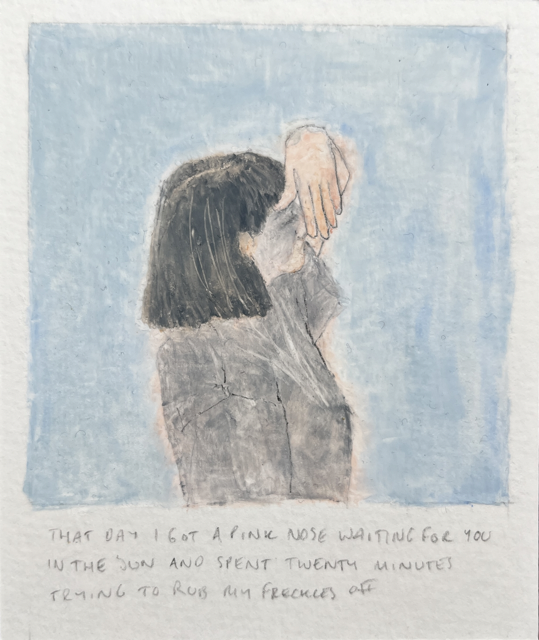 THAT DAY I GOT A PINK NOSE WAITING FOR YOU
IN THE SUN AND SPENT TWENTY MINUTES
TRYING TO RUB MY FRECKLES OFF